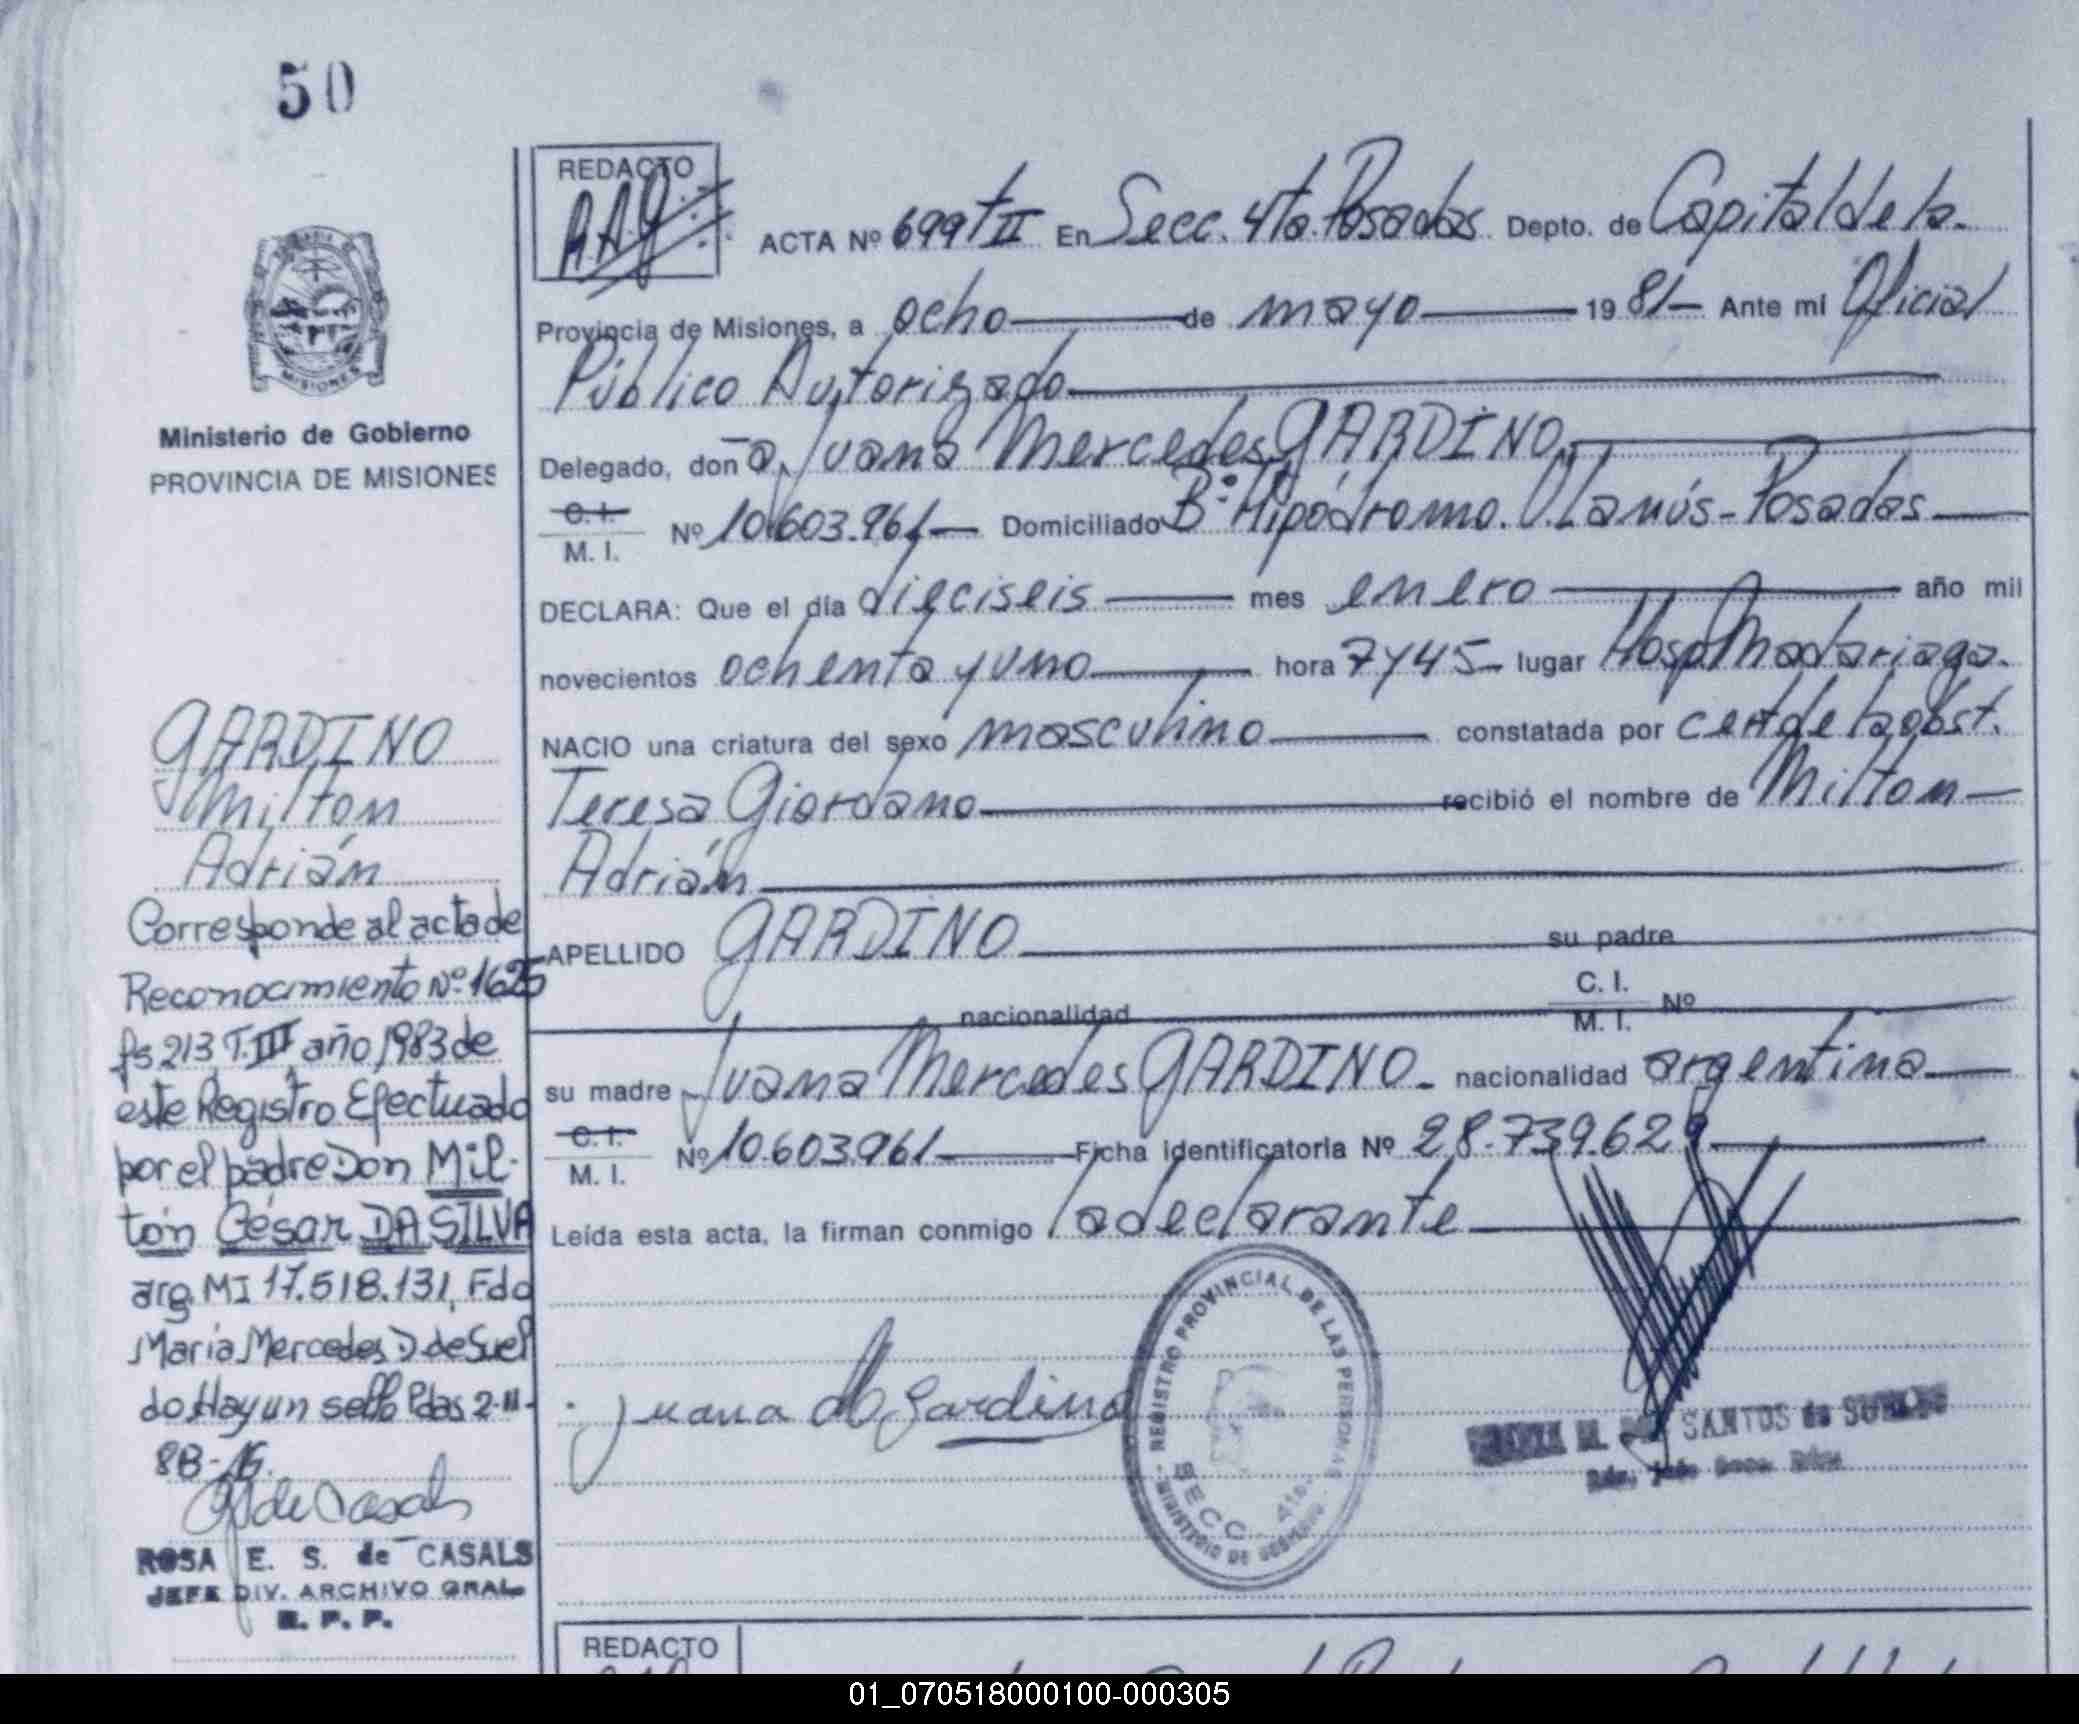 50
MISIONES
Ministerio de Gobierno
PROVINCIA DE MISIONES
GARDINO
Milton
Adrián
Corresponde al acta de
Reconocimiento Nº 1625
fs 213 T. III año 1983 de
este Registro Efectuado
por el padre Don Mil-
ton César DA SILVA
arg. MI 17.518.131, Fdo
María Mercedes D. de Suel
do Hay un sello Pdas 2-11-
83-
ROSA E. S. de CASALS
JEFE DIV. ARCHIVO GRAL
R. P. P.
REDACTO
ACTA Nº 699 t II En Secc. 4ta. Posadas Depto. de Capital de la
Provincia de Misiones, a ocho de mayo 1981 Ante mi Oficial
Público Autorizado
Delegado, doña Juana Mercedes GARDINO
C. I.
M. I. Nº 10.603.961 Domiciliado Bº Hipódromo. V. Lanús - Posadas
DECLARA: Que el día dieciseis mes enero año mil
novecientos ochenta y uno hora 7 y 45 lugar Hosp. Madariaga.
NACIO una criatura del sexo masculino constatada por cert de la obst.
Teresa Giordano recibió el nombre de Milton
Adrián
APELLIDO GARDINO su padre
nacionalidad C. I. M. I. Nº
su madre Juana Mercedes GARDINO nacionalidad argentina
C. I.
M. I. Nº 10.603.961 Ficha identificatoria Nº 28.739.629
Leída esta acta, la firman conmigo la declarante
Juana M Gardino
REGISTRO PROVINCIAL DE LAS PERSONAS
SECC. 4ta.
MINISTERIO DE GOBIERNO
M. SANTOS de
REDACTO
01_070518000100-000305